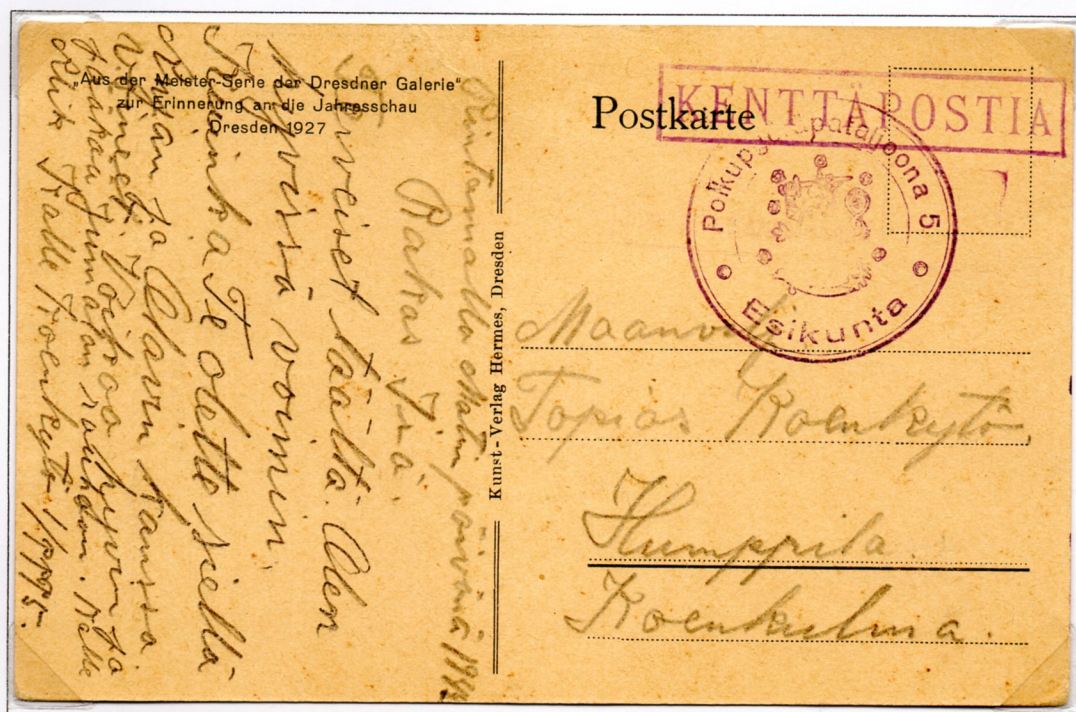 „Aus der Meister-Serie der Dresdner Galerie“
zur Erinnerung an die Jahresschau
Dresden 1927
Rintamalla päivänä
Rakas Isä.
Terveiset täältä. Olen
hyvissä voimin.
Kuinka Te olette siellä
ja Olavin kanssa
Voikaa hyvin ja
Jumalan rauhaan.
Kalle Koenkytö 1/PPP5.
Kunst-Verlag Hermes, Dresden
Postkarte
KENTTÄPOSTIA
Polkupyöräpataljoona 5
Esikunta
Maanvilj.
Topias Koenkytö,
Humppila.
Koenkulma.